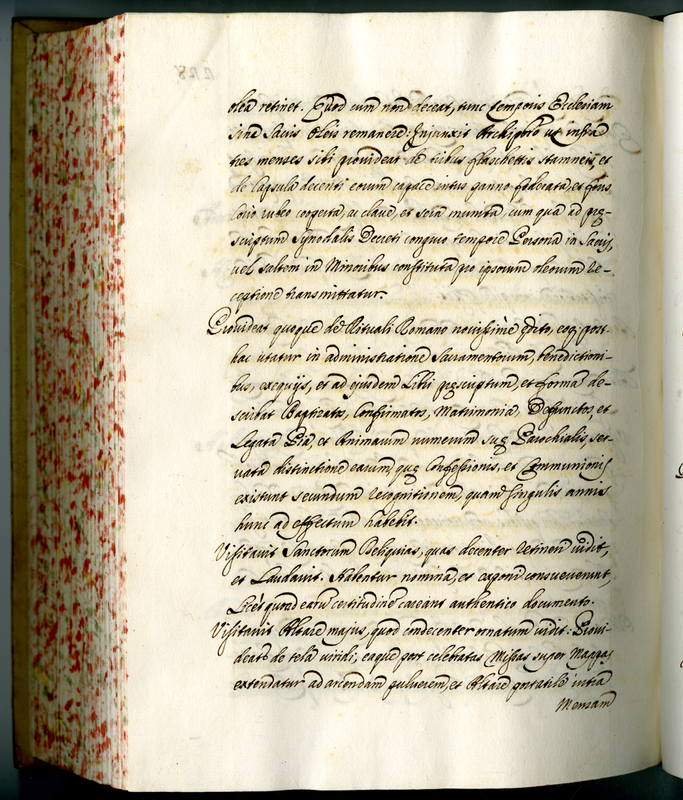 olea retinet. Quod cum non deceat, tunc temporis Ecclesiam
sine Sacris Oleis remanere: Injunxit Archipbro ut infra
tres menses sibi provideat de tribus flaschettis stamneis, et
de Capsula decenti eorum capace intus panno foderata, et foris
Corio rubeo cooperta, ac clave, et sera munita, cum qua ad prę-
scriptum Synodalis Decreti congruo tempore Persona in Sacris,
vel saltem in Minoribus constituta pro ipsorum oleorum re-
ceptione transmittatur.
Provideat quoque de Rituali Romano novissime edito, eoq; post
hac utatur in administratione Sacramentorum, benedictioni-
bus, exequijs, et ad ejusdem Libri pręscriptum, et forma de-
scribat Baptizatos, Confirmatos, Matrimonia, Defunctos, et
Legata Pia, et Animarum numerum suę Parochialis, ser-
vata distinctione earum, quę Confessionis, et Communionis
existunt secundum recognitionem, quam singulis annis
hunc ad effectum habebit.
Visitavit Sanctorum Reliquias, quas decenter retineri vidit,
et Laudavit. Habentur nomina, et exponi consueverunt,
Licet quoad earu certitudine careant authentico documento.
Visitavit Altare majus, quod condecenter ornatum vidit: Provi-
deat de tela viridi, eaque post celebratas Missas super Mappas
extendatur ad arcendam pulverem, et Altare portatile intra
Mensam